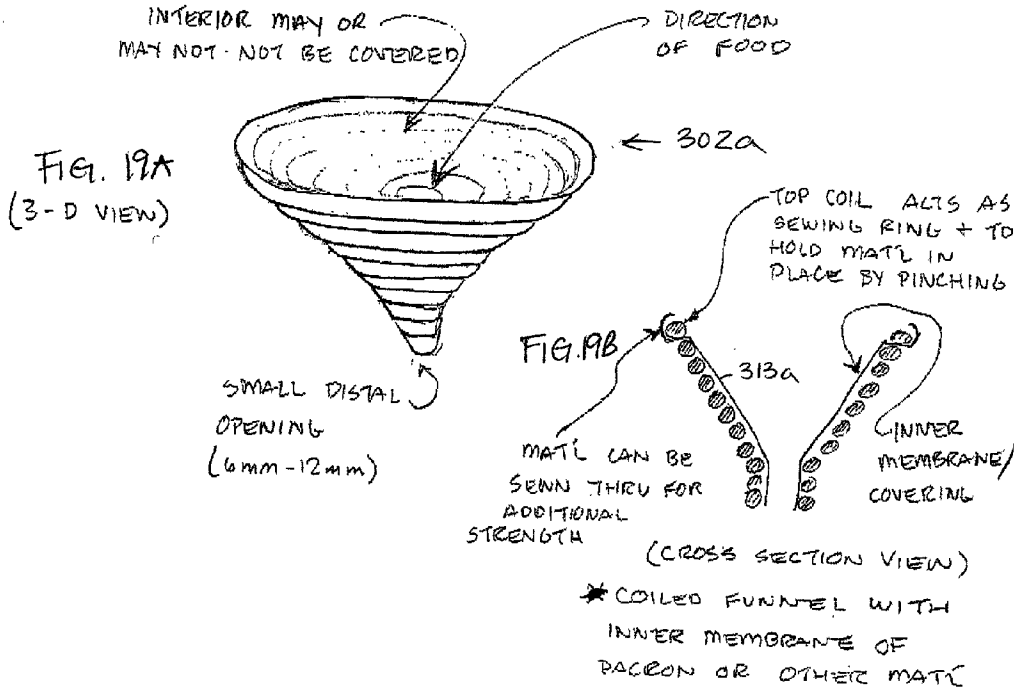 INTERIOR MAY OR
MAY NOT NOT BE COVERED
DIRECTION
OF FOOD
302a
FIG. 19A
(3-D VIEW)
SMALL DISTAL
OPENING
(6mm-12mm)
TOP COIL ACTS AS
SEWING RING + TO
HOLD MAT'L IN
PLACE BY PINCHING
FIG. 19B
313a
MAT'L CAN BE
SEWN THRU FOR
ADDITIONAL
STRENGTH
INNER
MEMBRANE/
COVERING
(CROSS SECTION VIEW)
* COILED FUNNEL WITH
INNER MEMBRANE OF
DACRON OR OTHER MAT'L